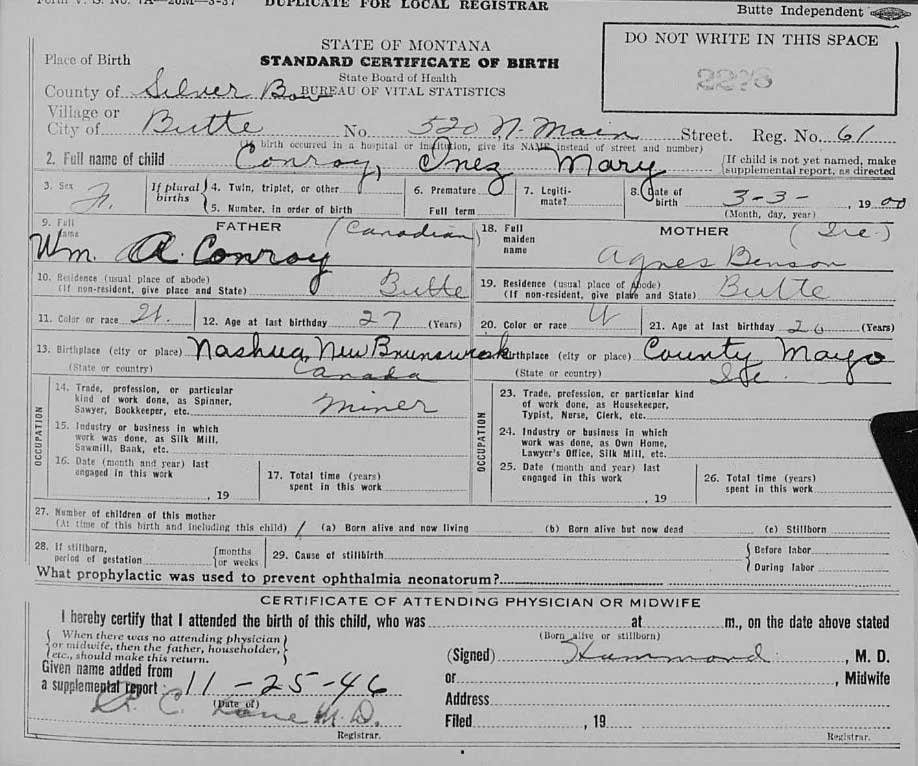 Form V. S. No. 7A—20M—3-37 DUPLICATE FOR LOCAL REGISTRAR Butte Independent
STATE OF MONTANA
STANDARD CERTIFICATE OF BIRTH
State Board of Health
BUREAU OF VITAL STATISTICS
DO NOT WRITE IN THIS SPACE
2276
Place of Birth
County of Silver Bow
Village or
City of Butte No. 520 N. Main Street. Reg. No. 61
(If birth occurred in a hospital or institution, give its NAME instead of street and number)
2. Full name of child Conroy, Inez Mary {If child is not yet named, make supplemental report, as directed
3. Sex F. If plural births 4. Twin, triplet, or other 6. Premature 7. Legitimate? 8. Date of birth 3-3-, 1900
5. Number, in order of birth Full term (Month, day, year)
9. Full name FATHER (Canadian) 18. Full maiden name MOTHER (Ire.)
Wm. A Conroy Agnes Benson
10. Residence (usual place of abode) (If non-resident, give place and State) Butte 19. Residence (usual place of abode) (If non-resident, give place and State) Butte
11. Color or race W. 12. Age at last birthday 27 (Years) 20. Color or race W 21. Age at last birthday 20 (Years)
13. Birthplace (city or place) Nashua, New Brunswick Birthplace (city or place) County Mayo
(State or country) Canada (State or country) Ire.
OCCUPATION
14. Trade, profession, or particular kind of work done, as Spinner, Sawyer, Bookkeeper, etc. Miner
15. Industry or business in which work was done, as Silk Mill, Sawmill, Bank, etc.
16. Date (month and year) last engaged in this work , 19
17. Total time (years) spent in this work
OCCUPATION
23. Trade, profession, or particular kind of work done, as Housekeeper, Typist, Nurse, Clerk, etc.
24. Industry or business in which work was done, as Own Home, Lawyer's Office, Silk Mill, etc.
25. Date (month and year) last engaged in this work , 19
26. Total time (years) spent in this work
27. Number of children of this mother
(At time of this birth and including this child) 1 (a) Born alive and now living (b) Born alive but now dead (c) Stillborn
28. If stillborn, period of gestation {months or weeks 29. Cause of stillbirth {Before labor
During labor
What prophylactic was used to prevent ophthalmia neonatorum?
CERTIFICATE OF ATTENDING PHYSICIAN OR MIDWIFE
I hereby certify that I attended the birth of this child, who was at m., on the date above stated
(Born alive or stillborn)
{When there was no attending physician or midwife, then the father, householder, etc., should make this return.}
(Signed) Hammond, M. D.
Given name added from
a supplemental report 11-25-46
(Date of)
or , Midwife
Address
C. Lane M.D.
Registrar.
Filed , 19
Registrar.